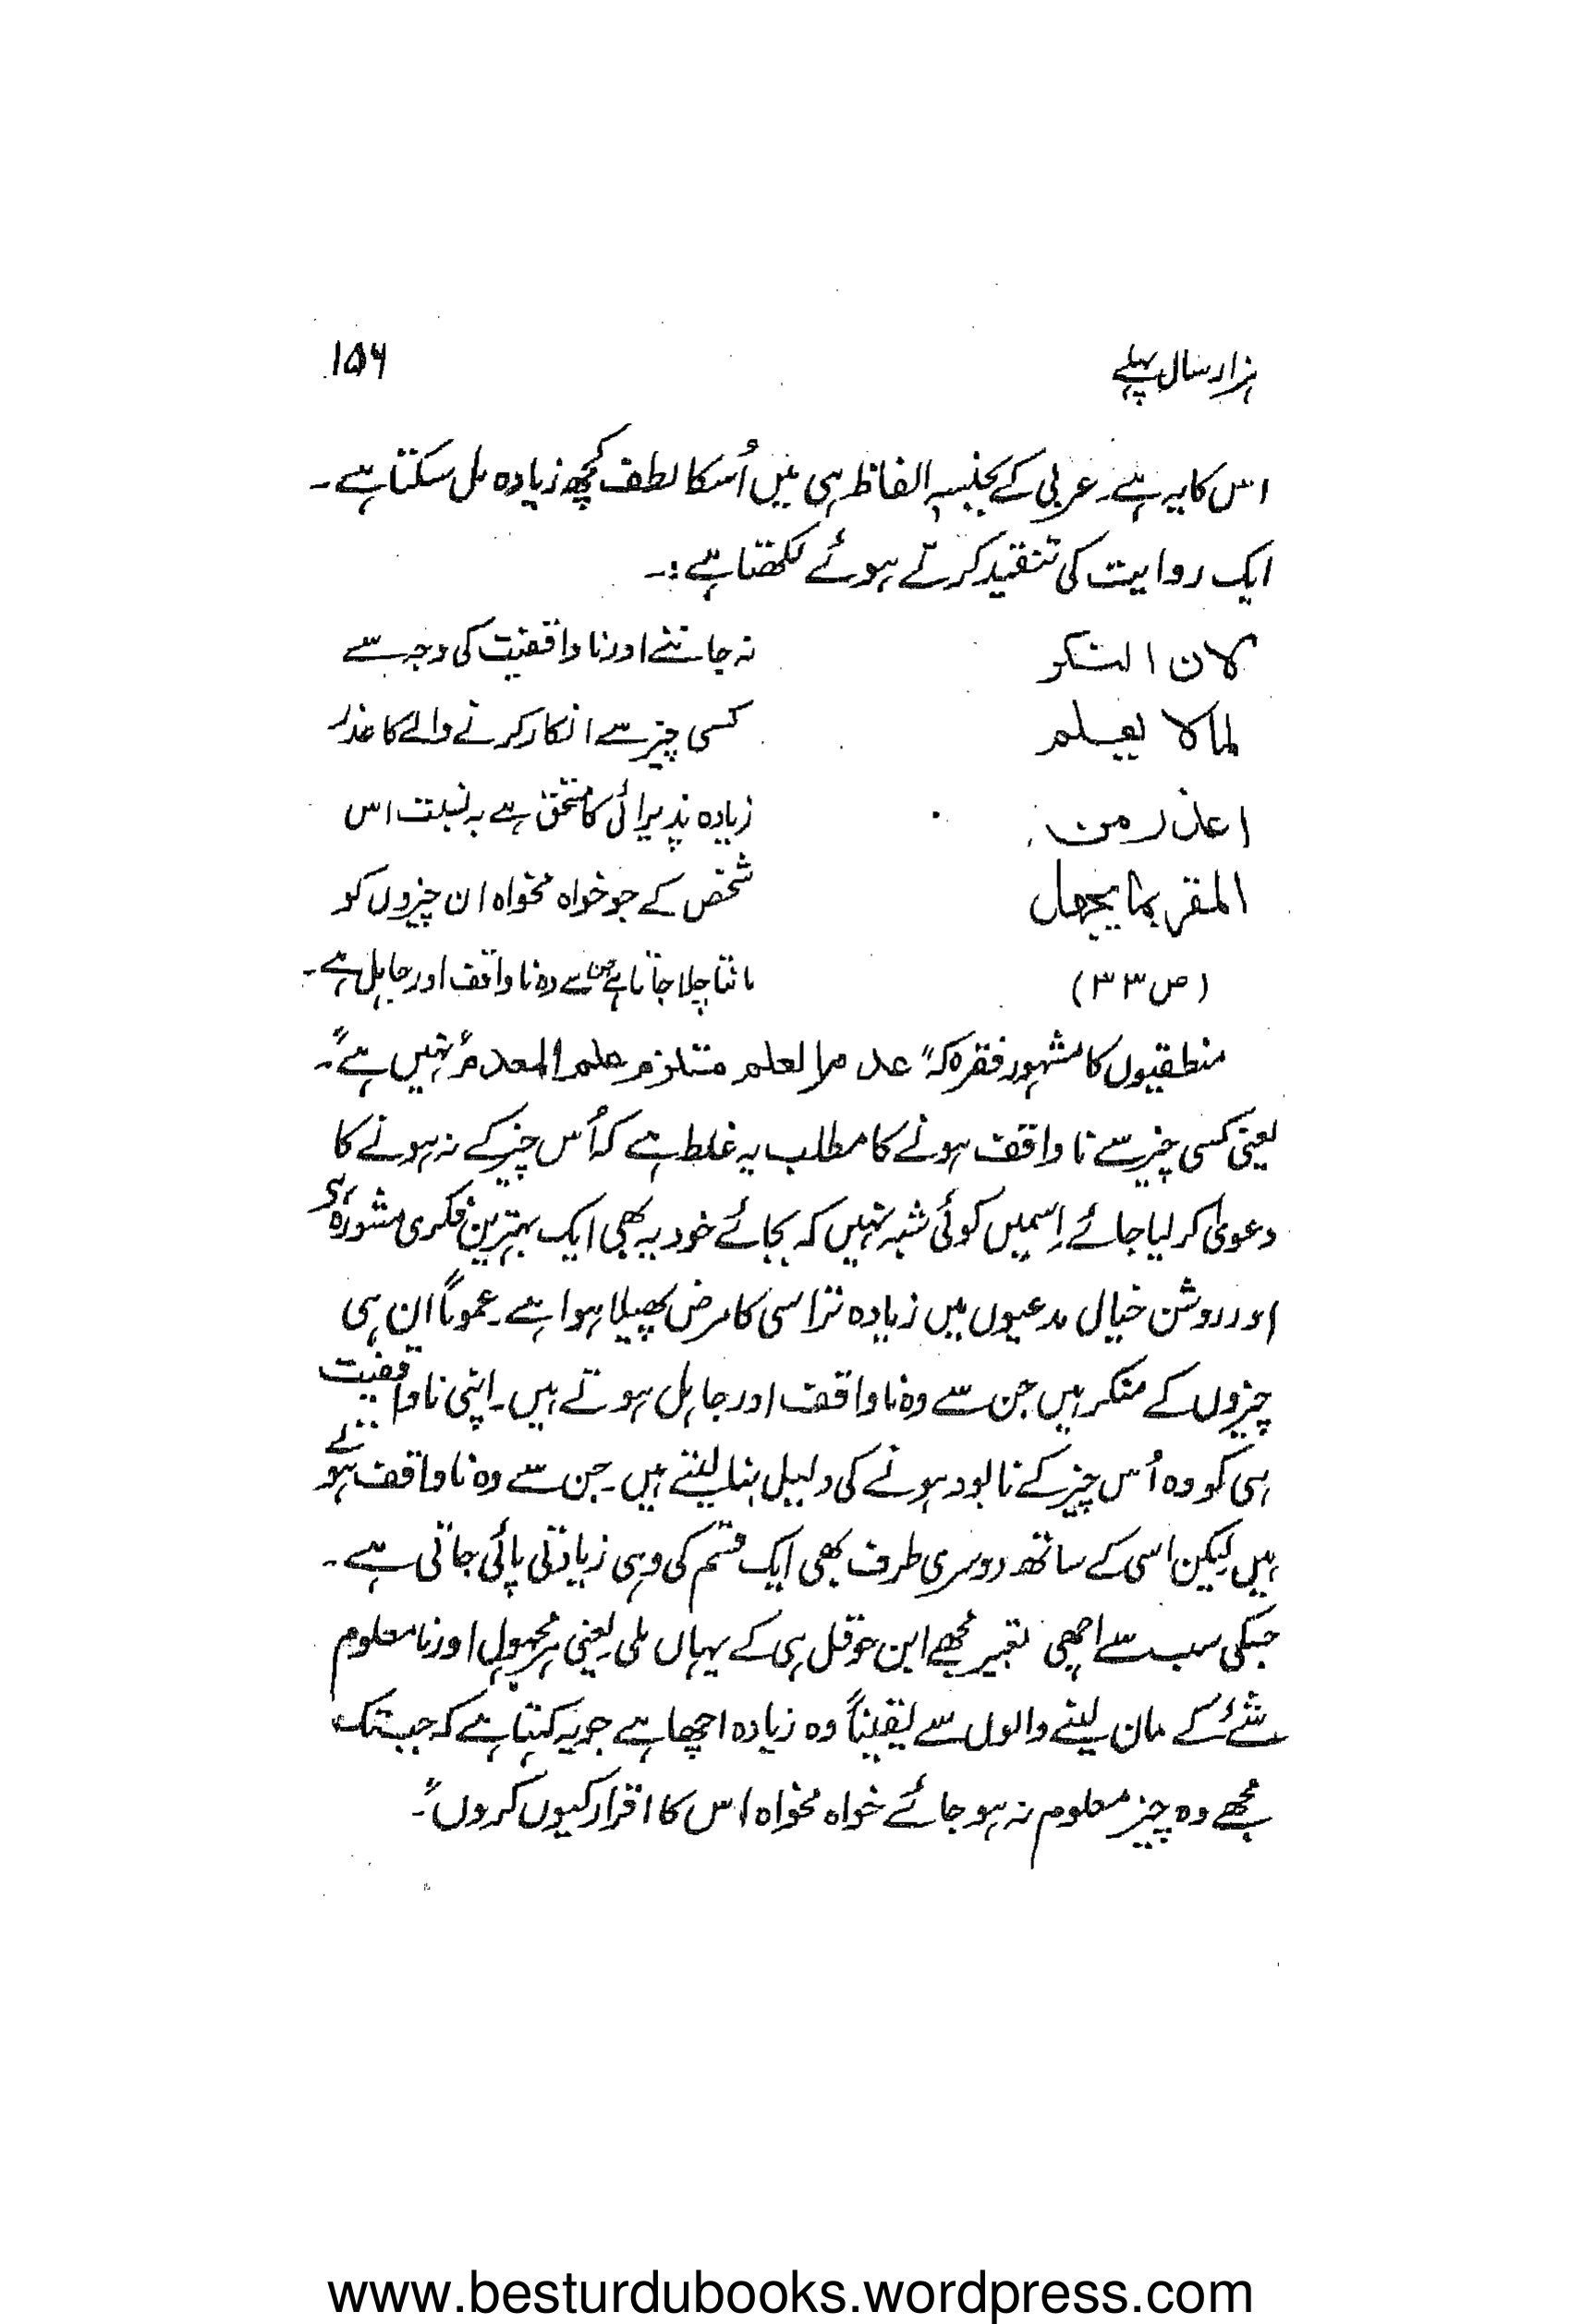 ہزار سال پہلے ۱۵۶
اس کا یہ ہے۔ عربی کے بجنسہٖ الفاظ ہی میں اُسکا لطف کچھ زیادہ مل سکتا ہے۔
ایک روایت کی تنقید کرتے ہوئے لکھتا ہے:۔
لان المنکر نہ جاننے اور ناواقفیت کی وجہ سے
لما لا یعلم کسی چیز سے انکار کرنے والے کا عذر
اعذر من زیادہ پذیرائی کا مستحق ہے بہ نسبت اس
المقر بما یجھل شخص کے جو خواہ مخواہ ان چیزوں کو
(ص ۳۳) مانتا چلا جاتا ہے جن سے وہ ناواقف اور جاہل ہے۔
منطقیوں کا مشہور فقرہ کہ "عدم العلم مستلزم علم العدم" نہیں ہے"۔
یعنی کسی چیز سے ناواقف ہونے کا مطلب یہ غلط ہے کہ اُس چیز کے نہ ہونے کا
دعویٰ کر لیا جائے اِسمیں کوئی شبہ نہیں کہ بجائے خود یہ بھی ایک بہترین فکری مشورہ ہی
اور روشن خیال مدعیوں میں زیادہ تر اسی کا مرض پھیلا ہوا ہے۔ عموماً ان ہی
چیزوں کے منکر ہیں جن سے وہ ناواقف اور جاہل ہوتے ہیں۔ اپنی ناواقفیت
ہی کو وہ اُس چیز کے نابود ہونے کی دلیل بنا لیتے ہیں۔ جن سے وہ ناواقف ہوتے
ہیں لیکن اسی کے ساتھ دوسری طرف بھی ایک قسم کی وہی زیادتی پائی جاتی ہے۔
جسکی سب سے اچھی تعبیر مجھے ابن حوقل ہی کے یہاں ملی یعنی ہر مجہول اور نامعلوم
شئے کے مان لینے والوں سے یقیناً وہ زیادہ اچھا ہے جو یہ کہتا ہے کہ جب تک
مجھے وہ چیز معلوم نہ ہو جائے خواہ مخواہ اس کا اقرار کیوں کروں"۔
www.besturdubooks.wordpress.com